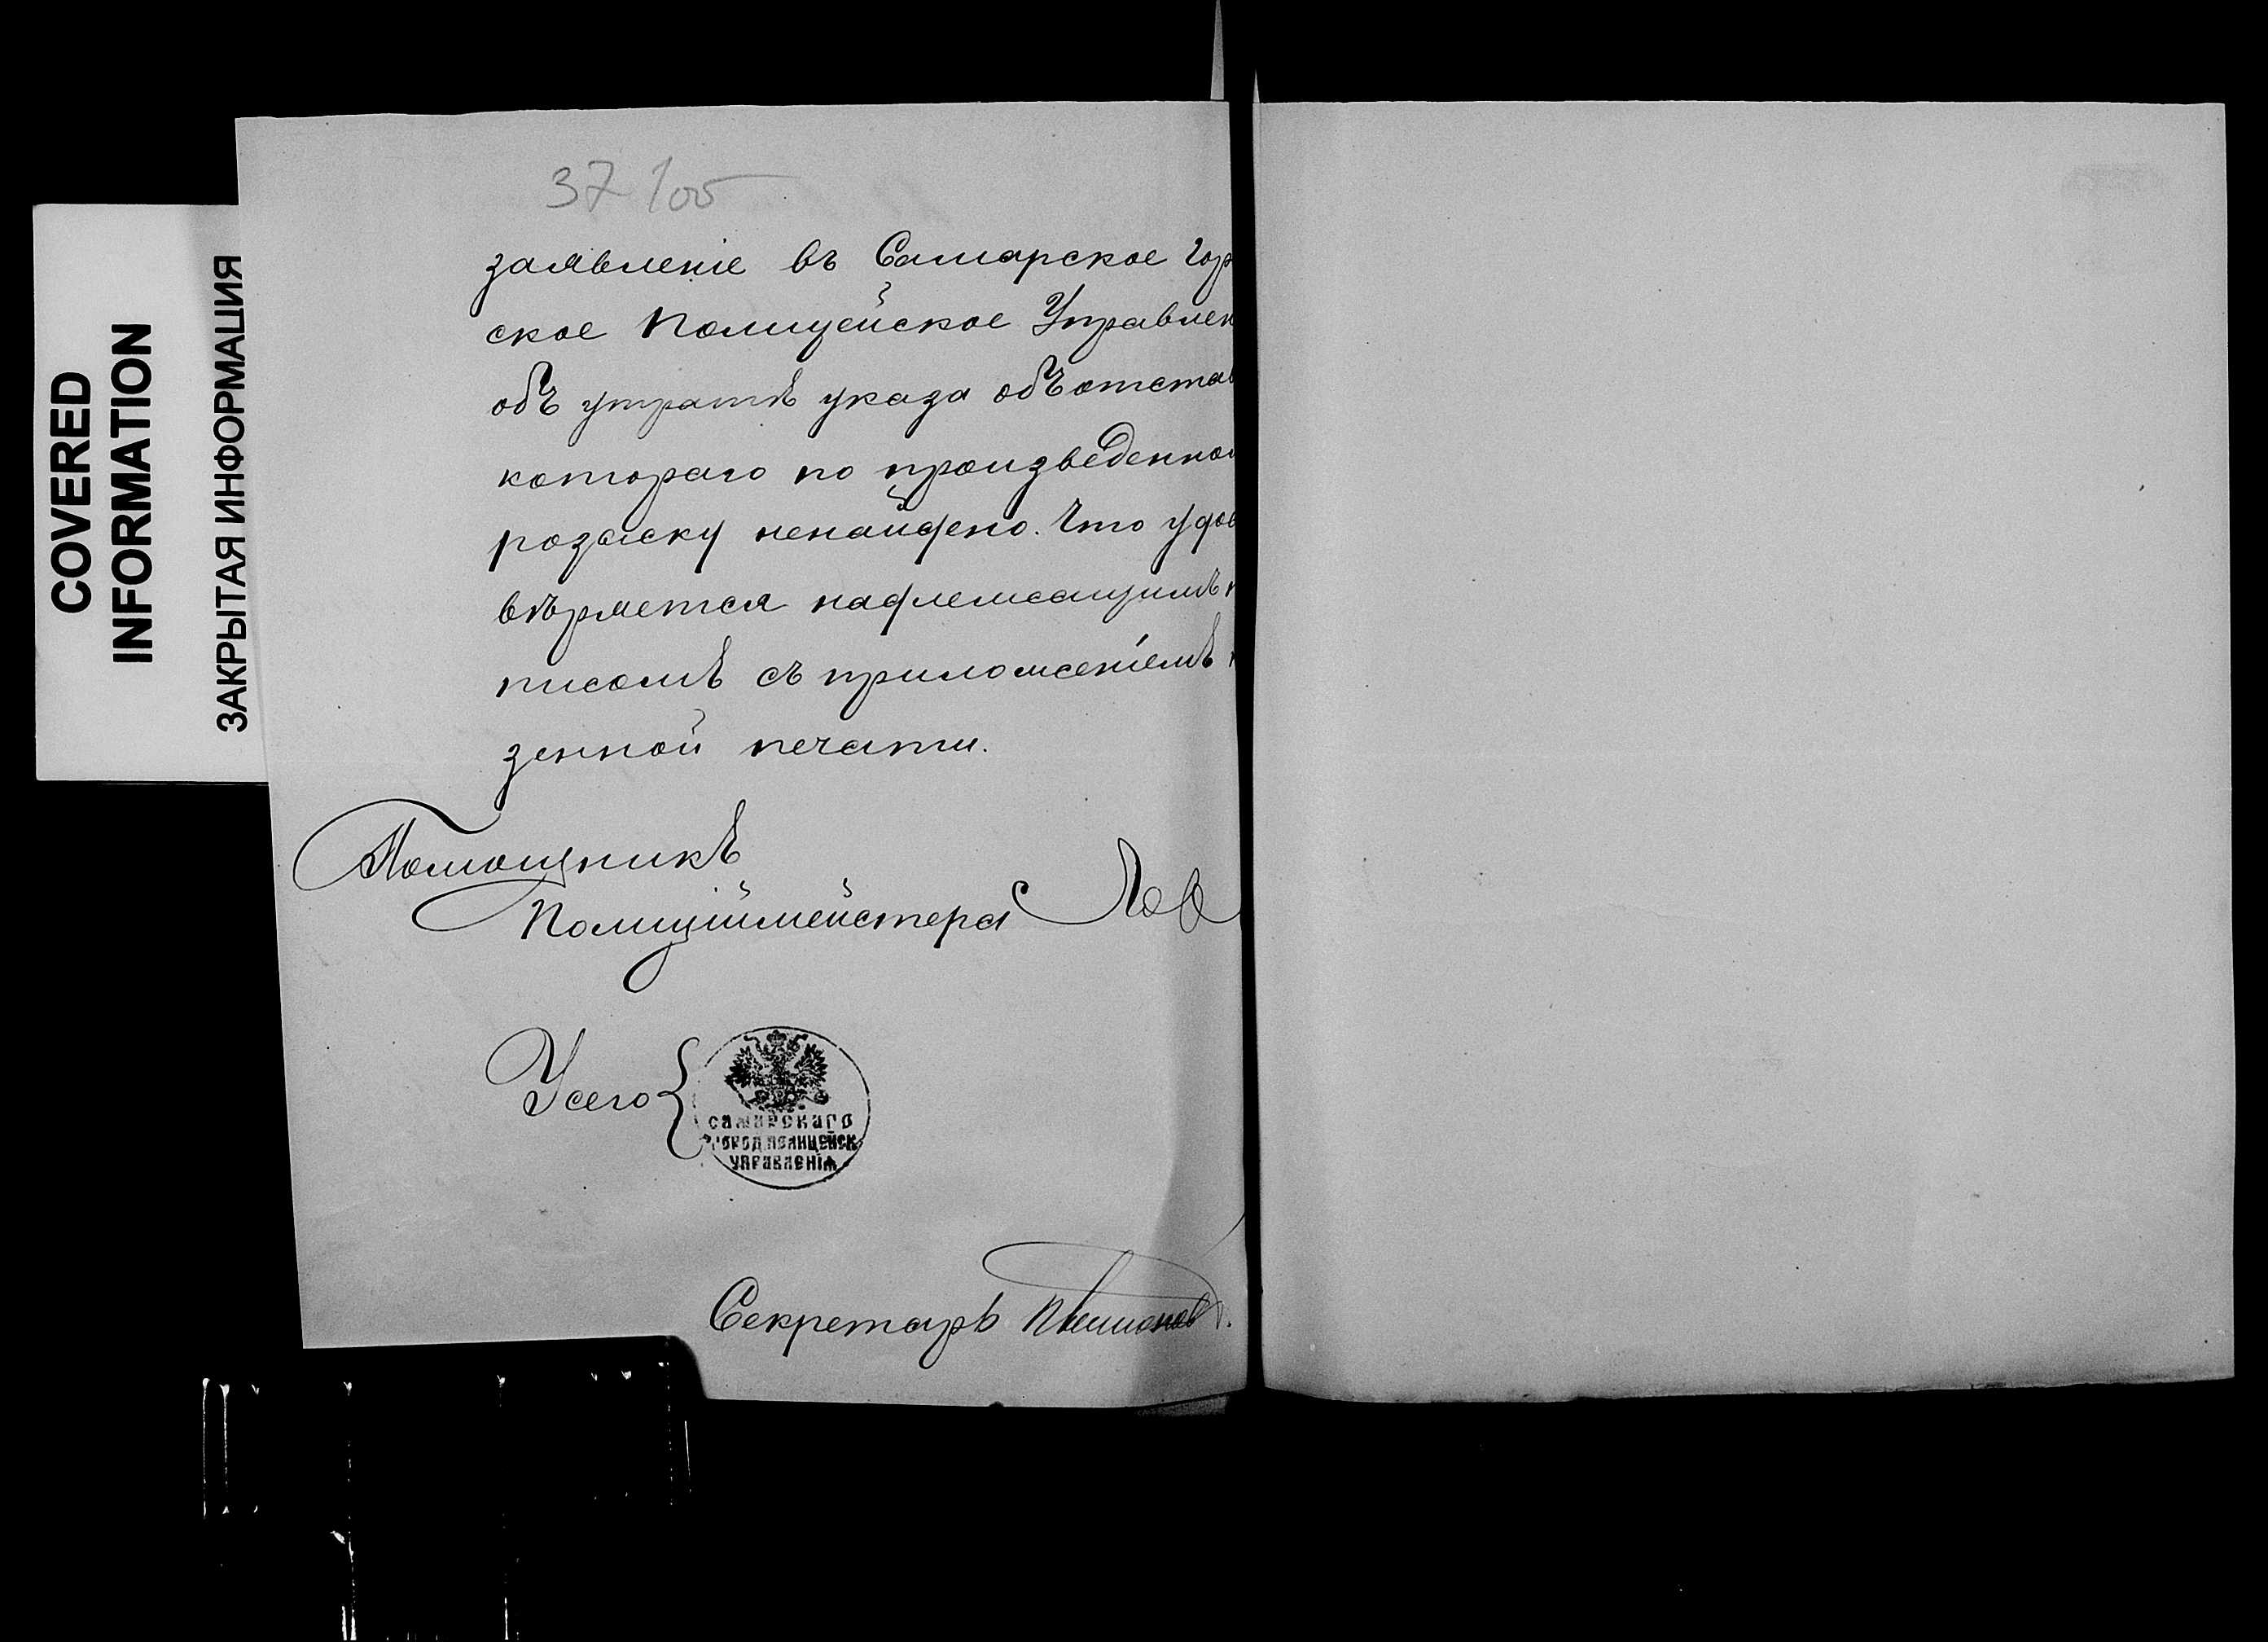 COVERED
INFORMATION
ЗАКРЫТАЯ ИНФОРМАЦИЯ
37 105
заявленіе въ Самарское Гор
ское Полицейское Управлен
объ утратѣ указа объ отстав
котораго по произведенном
розыску ненайдено. Что удос
вѣряется надлежащимъ
писомъ съ приложеніемъ
зенной печати.
Помощникъ
Полиціймейстера
У сего
САМАРСКАГО
ГОРОД. ПОЛИЦЕЙСК.
УПРАВЛЕНІЯ
Секретарь